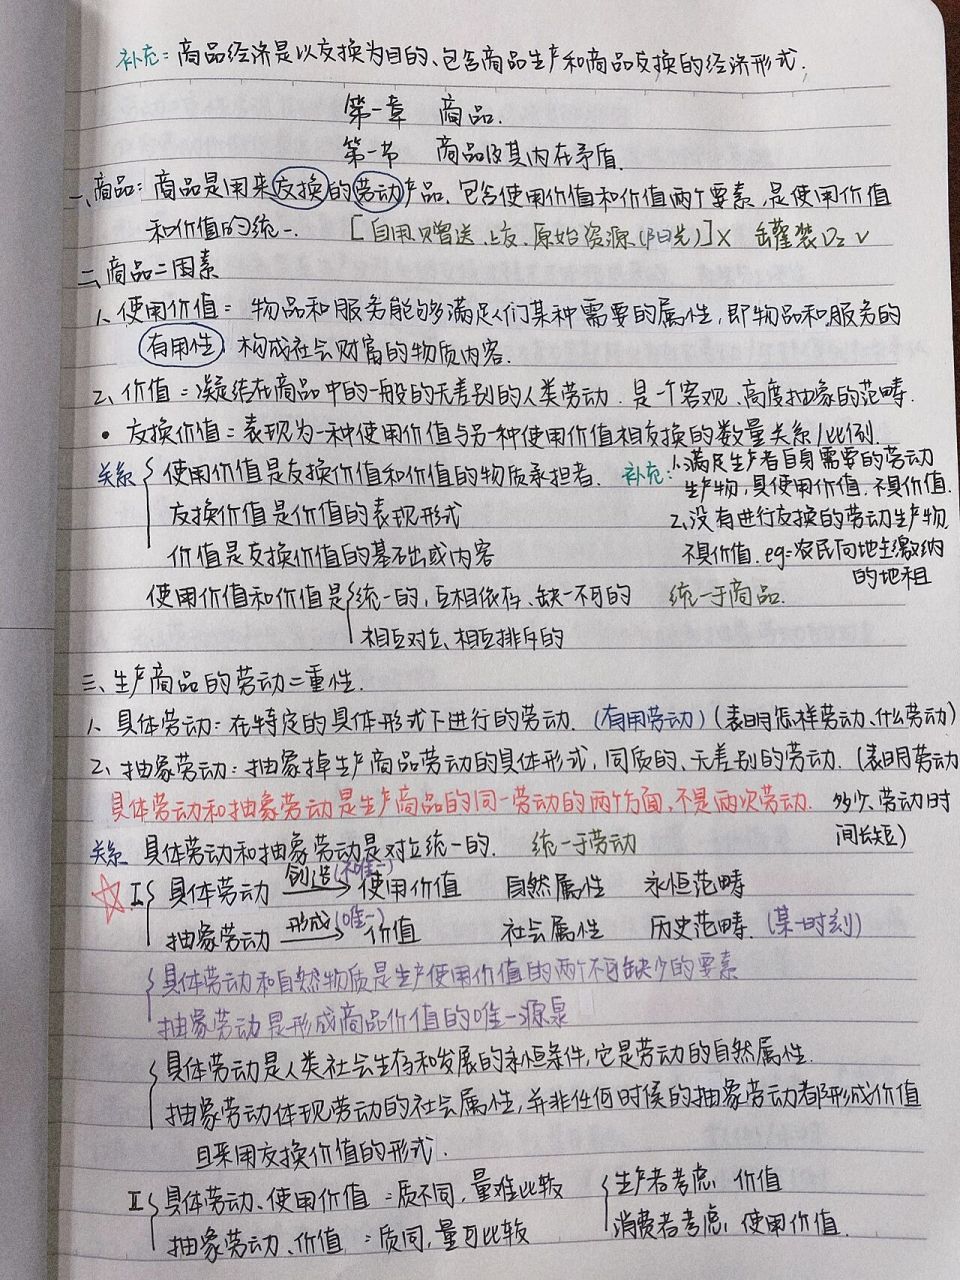 补充：商品经济是以交换为目的、包含商品生产和商品交换的经济形式.
第一章 商品.
第一节 商品及其内在矛盾.
一、商品：商品是用来交换的劳动产品.包含使用价值和价值两个要素,是使用价值
和价值的统一. [自用、赠送、上交、原始资源(阳光)]× 罐装O₂ √
二、商品二因素
1、使用价值：物品和服务能够满足人们某种需要的属性,即物品和服务的
有用性,构成社会财富的物质内容.
2、价值：凝结在商品中的一般的无差别的人类劳动.是一个客观、高度抽象的范畴.
• 交换价值：表现为一种使用价值与另一种使用价值相交换的数量关系/比例.
关系 使用价值是交换价值和价值的物质承担者.
交换价值是价值的表现形式
价值是交换价值的基础或内容
补充：1、满足生产者自身需要的劳动
生产物,具使用价值,不具价值.
2、没有进行交换的劳动生产物
不具价值.eg=农民向地主缴纳
的地租
使用价值和价值是 统一的,互相依存、缺一不可的 统一于商品.
相互对立、相互排斥的
三、生产商品的劳动二重性.
1、具体劳动：在特定的具体形式下进行的劳动.(有用劳动)(表明怎样劳动、什么劳动)
2、抽象劳动：抽象掉生产商品劳动的具体形式,同质的、无差别的劳动.(表明劳动
多少、劳动时
间长短)
具体劳动和抽象劳动是生产商品的同一劳动的两个方面,不是两次劳动.
关系 具体劳动和抽象劳动是对立统一的. 统一于劳动
☆ I 具体劳动 创造(不唯一)→ 使用价值 自然属性 永恒范畴
抽象劳动 形成(唯一)→ 价值 社会属性 历史范畴.(某一时刻)
具体劳动和自然物质是生产使用价值的两个不可缺少的要素
抽象劳动是形成商品价值的唯一源泉
具体劳动是人类社会生存和发展的永恒条件,它是劳动的自然属性.
抽象劳动体现劳动的社会属性,并非任何时候的抽象劳动都形成价值
且采用交换价值的形式.
II 具体劳动、使用价值：质不同,量难比较 生产者考虑：价值
抽象劳动、价值：质同,量可比较 消费者考虑：使用价值.